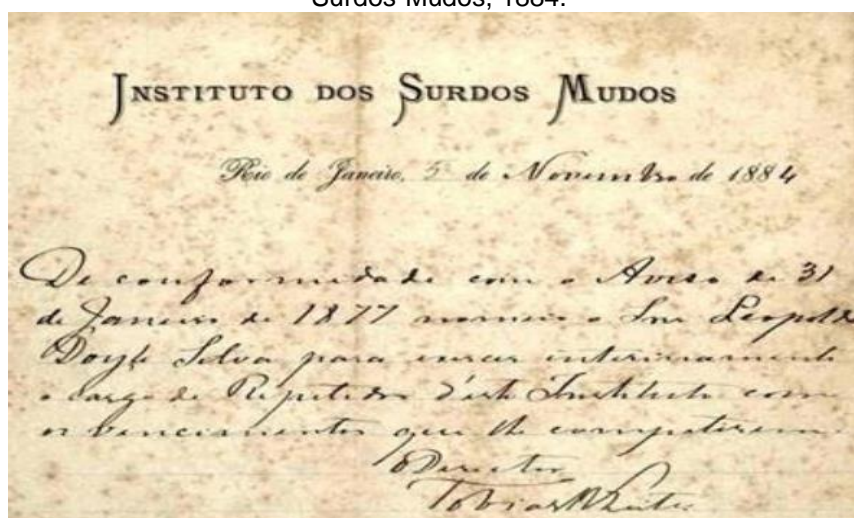 Surdos Mudos, 1884.
INSTITUTO DOS SURDOS MUDOS
Rio de Janeiro, 5 de Novembro de 1884
De conformidade com o Aviso de 31
de Janeiro de 1877 nomeio o Snr Leopoldo
Doyle Silva para exercer interinamente
o cargo de Repetidor d'este Instituto com
os vencimentos que lhe competirem.
O Director
Tobias R Leite